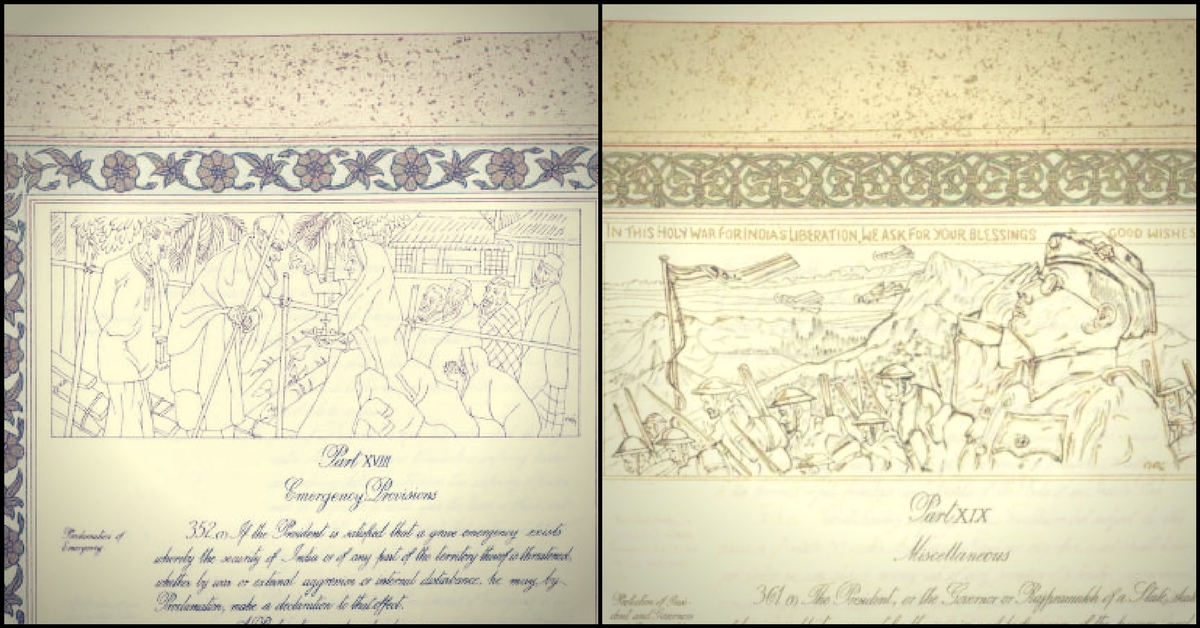 Part XVIII
Emergency Provisions
Proclamation of
Emergency
352.(1) If the President is satisfied that a grave emergency exists
whereby the security of India or of any part of the territory thereof is threatened,
whether by war or external aggression or internal disturbance, he may, by
Proclamation, make a declaration to that effect.
IN THIS HOLY WAR FOR INDIA'S LIBERATION, WE ASK FOR YOUR BLESSINGS GOOD WISHES
Part XIX
Miscellaneous
Protection of Presi-
dent and Governors
361.(1) The President, or the Governor or Rajpramukh of a State, shall